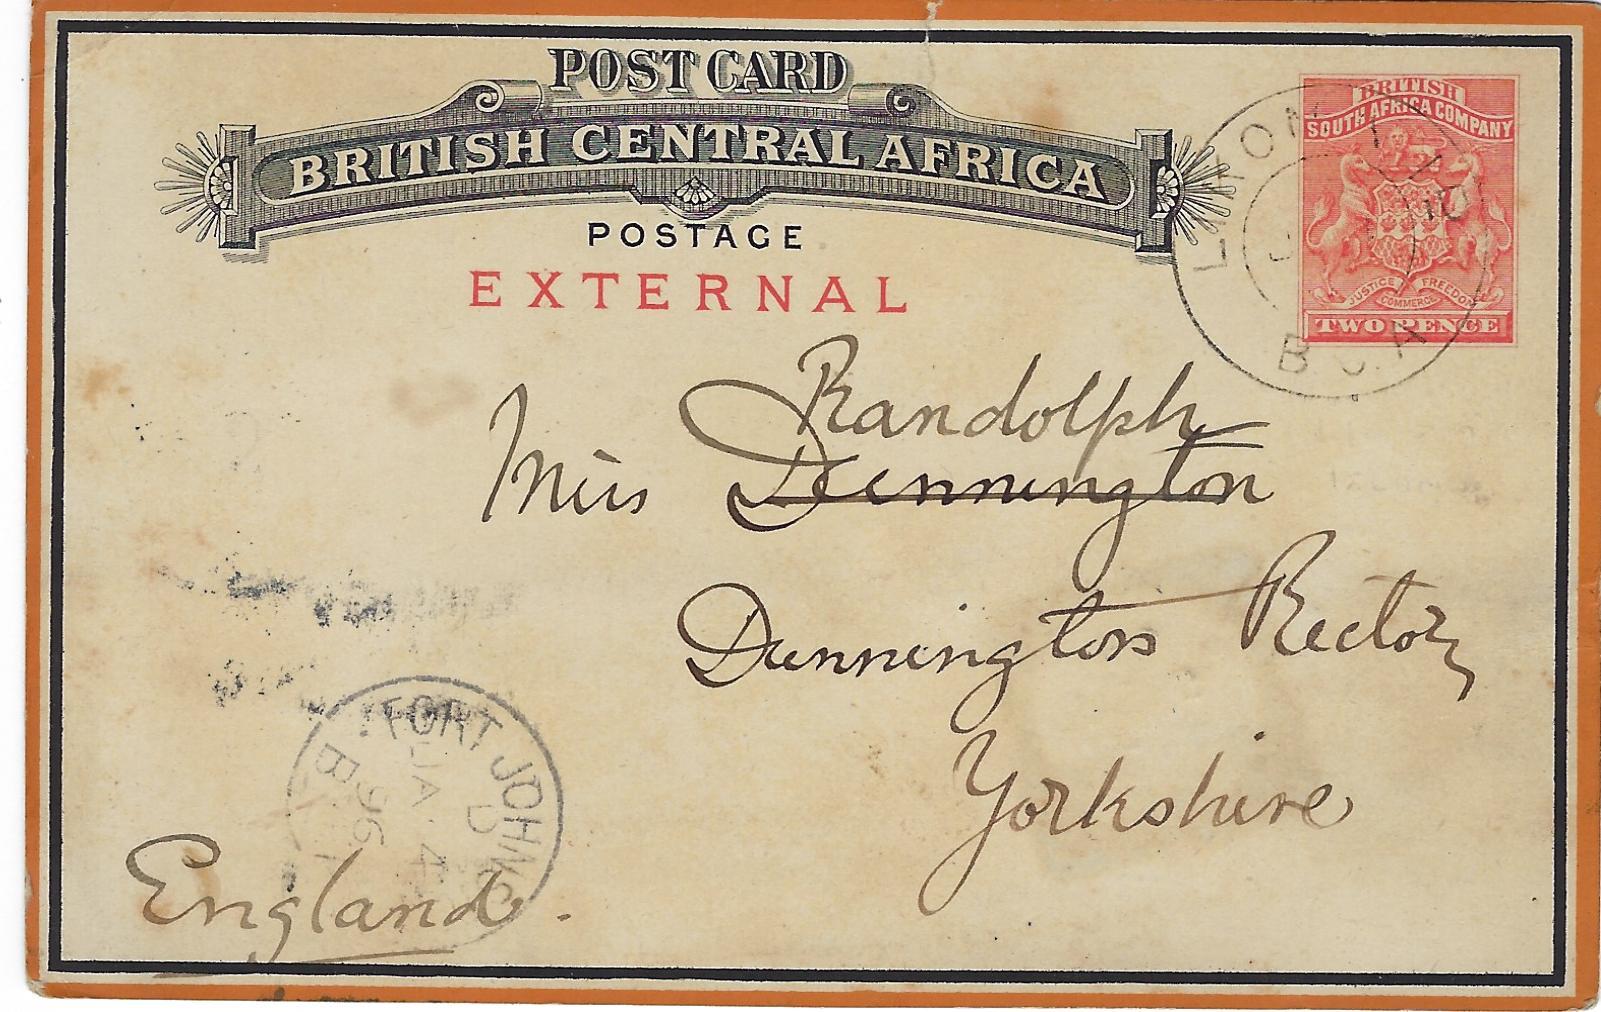 POST CARD
BRITISH CENTRAL AFRICA
POSTAGE
EXTERNAL
BRITISH
SOUTH AFRICA COMPANY
JUSTICE FREEDOM
COMMERCE
TWO PENCE
B C A
Randolph
Miss Dunnington
Dunnington Rectory
Yorkshire
England.
FORT JOHNSTON
D
JA 4
96
B